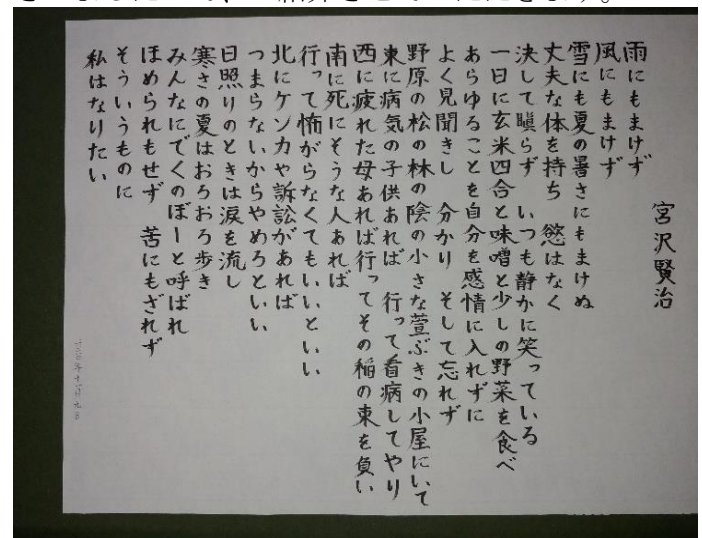 宮沢賢治
雨にもまけず
風にもまけず
雪にも夏の暑さにもまけぬ
丈夫な体を持ち 慾はなく
決して瞋らず いつも静かに笑っている
一日に玄米四合と味噌と少しの野菜を食べ
あらゆることを自分を感情に入れずに
よく見聞きし 分かり そして忘れず
野原の松の林の陰の小さな萱ぶきの小屋にいて
東に病気の子供あれば 行って看病してやり
西に疲れた母あれば行ってその稲の束を負い
南に死にそうな人あれば
行って怖がらなくてもいいといい
北にケンカや訴訟があれば
つまらないからやめろといい
日照りのときは涙を流し
寒さの夏はおろおろ歩き
みんなにでくのぼーと呼ばれ
ほめられもせず 苦にもざれず
そういうものに
私はなりたい